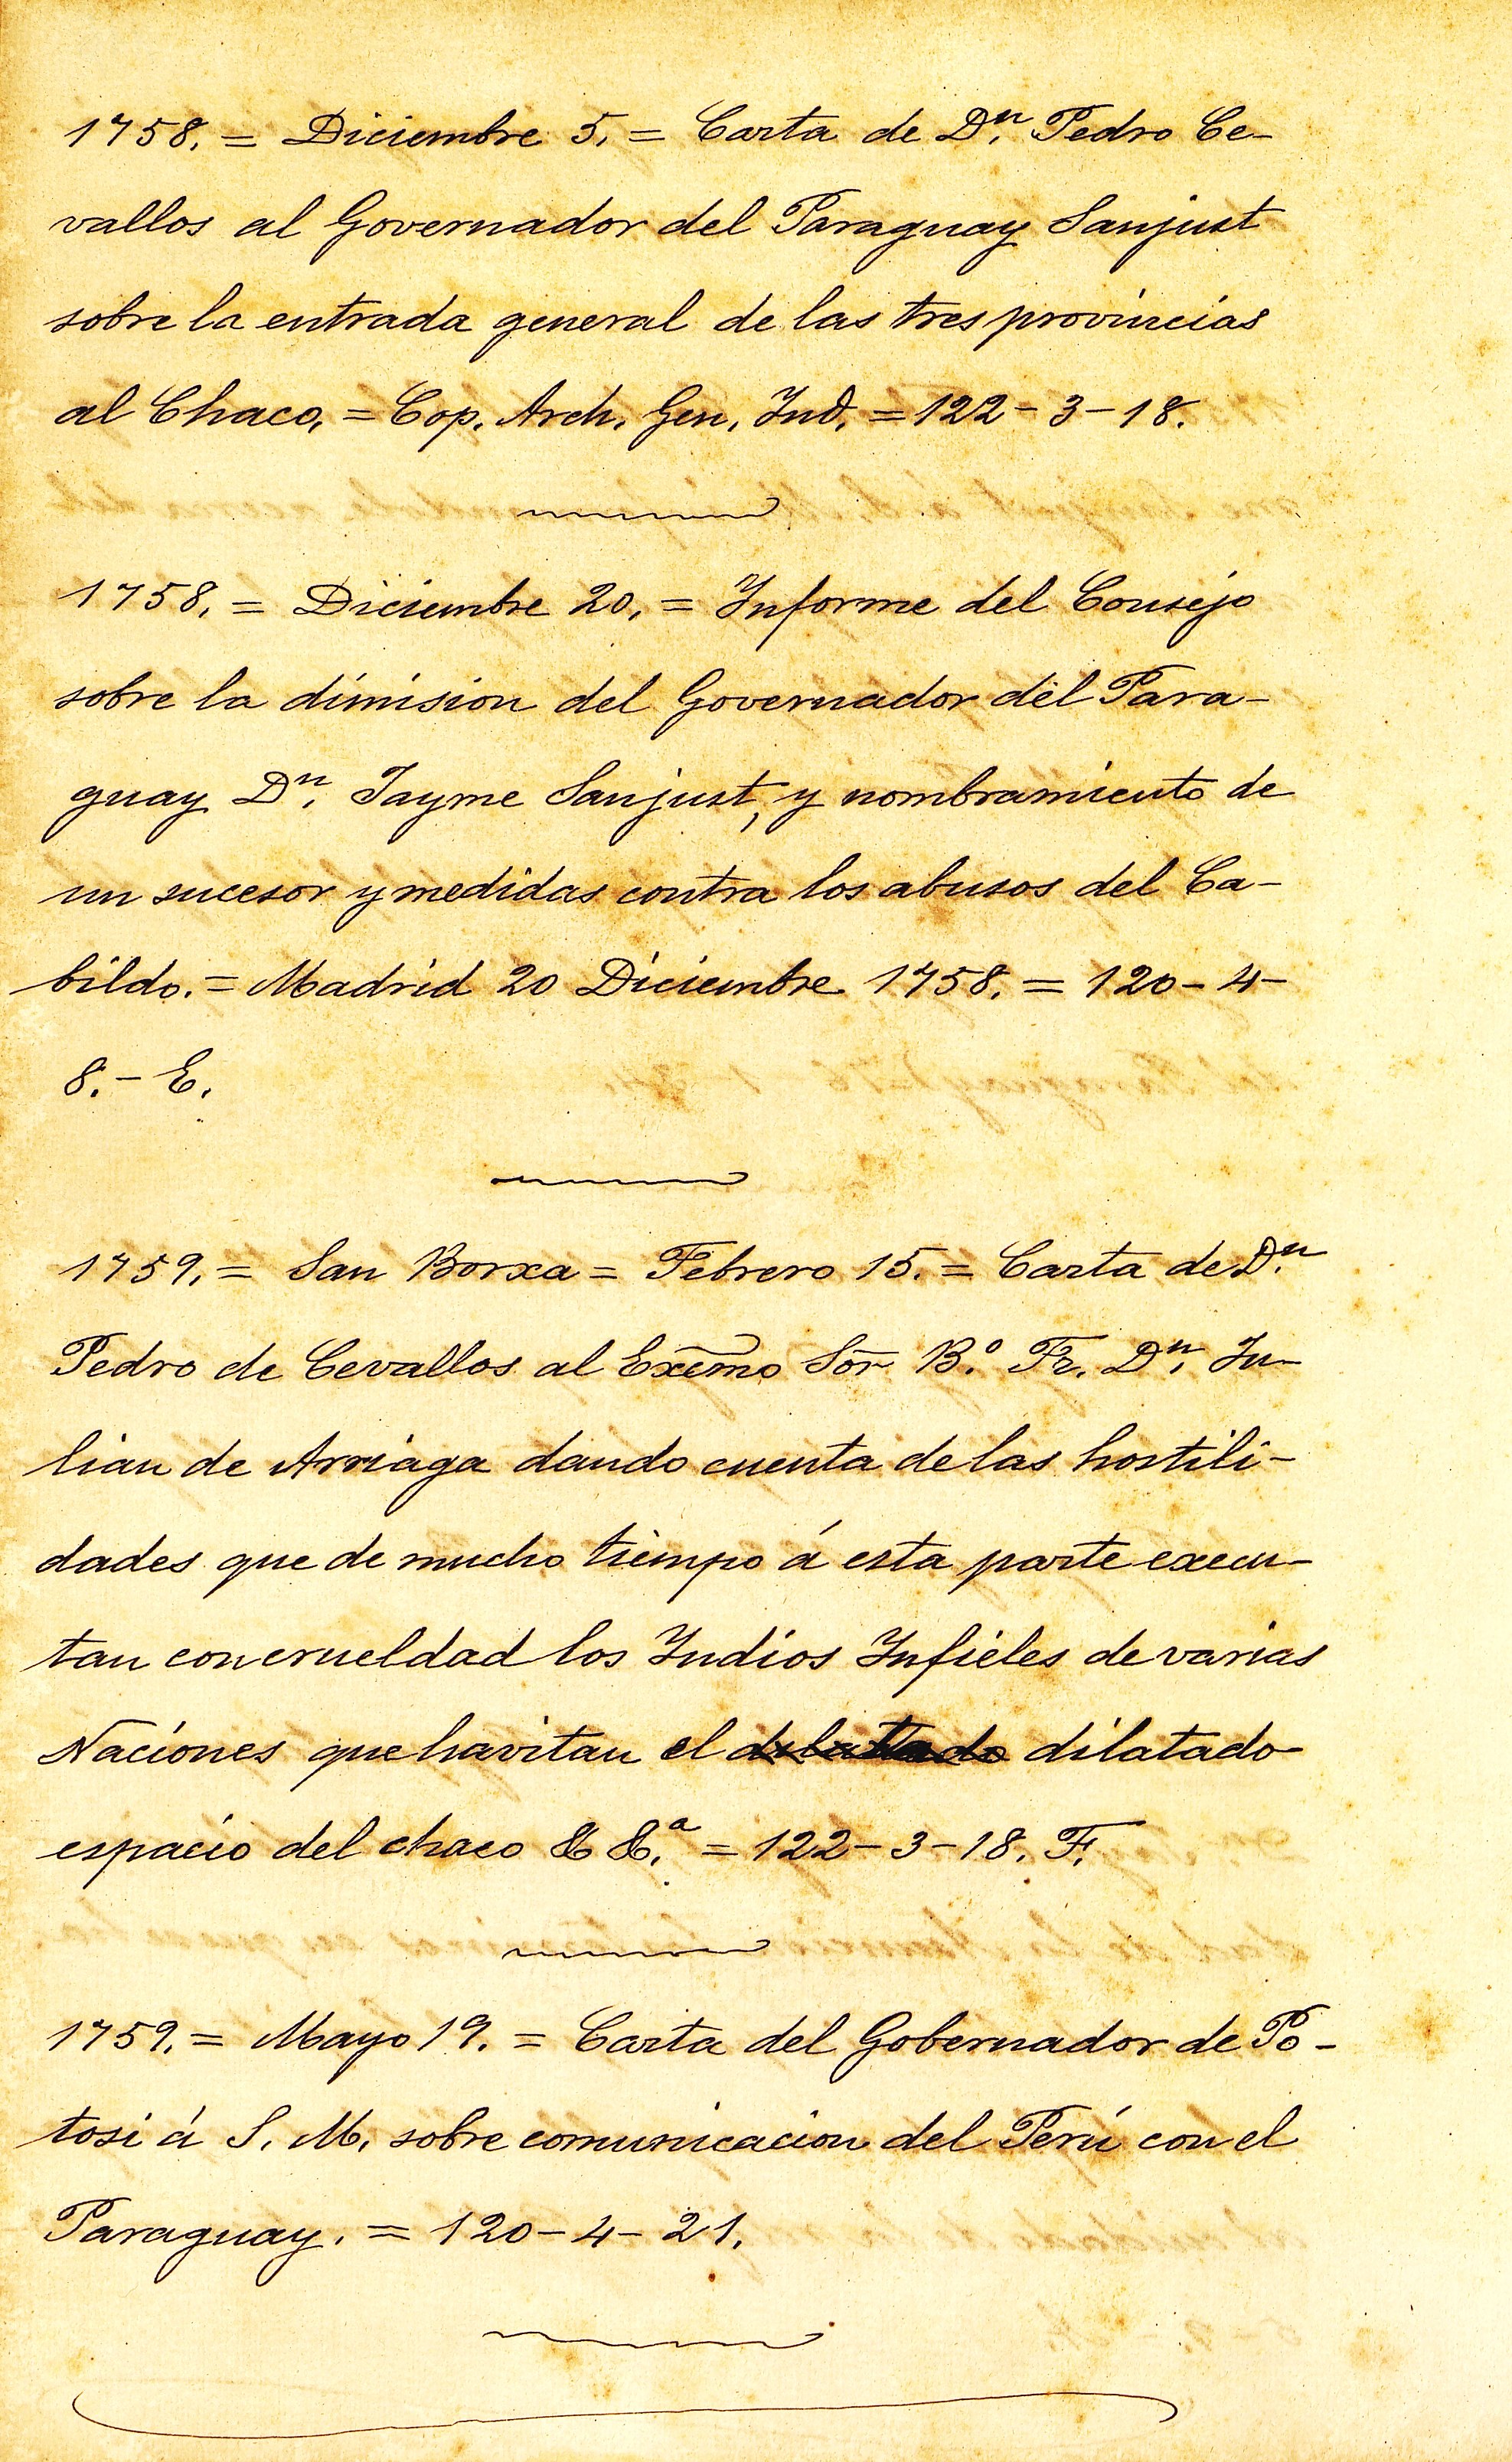 1758. = Diciembre 5. = Carta de Dⁿ. Pedro Ce-
vallos al Governador del Paraguay Sanjust
sobre la entrada general de las tres provincias
al Chaco. = Cop. Arch. Gen. Ind. = 122 - 3 - 18.
1758. = Diciembre 20. = Informe del Consejo
sobre la dimision del Governador del Para-
guay Dⁿ. Jayme Sanjust, y nombramiento de
un sucesor y medidas contra los abusos del Ca-
bildo. = Madrid 20 Diciembre 1758. = 120 - 4 -
8. - E.
1759. = San Borxa = Febrero 15. = Carta de Dⁿ.
Pedro de Cevallos al Exẽmo Sõr B.º Fr. Dⁿ. Ju-
lian de Arriaga dando cuenta de las hostili-
dades que de mucho tiempo á esta parte execu-
tan con crueldad los Indios Infieles de varias
Naciones que havitan el dilatado
espacio del chaco & &.ª = 122 - 3 - 18. F.
1759. = Mayo 19. = Carta del Gobernador de Po-
tosi á S. M. sobre comunicacion del Perú con el
Paraguay. = 120 - 4 - 21.